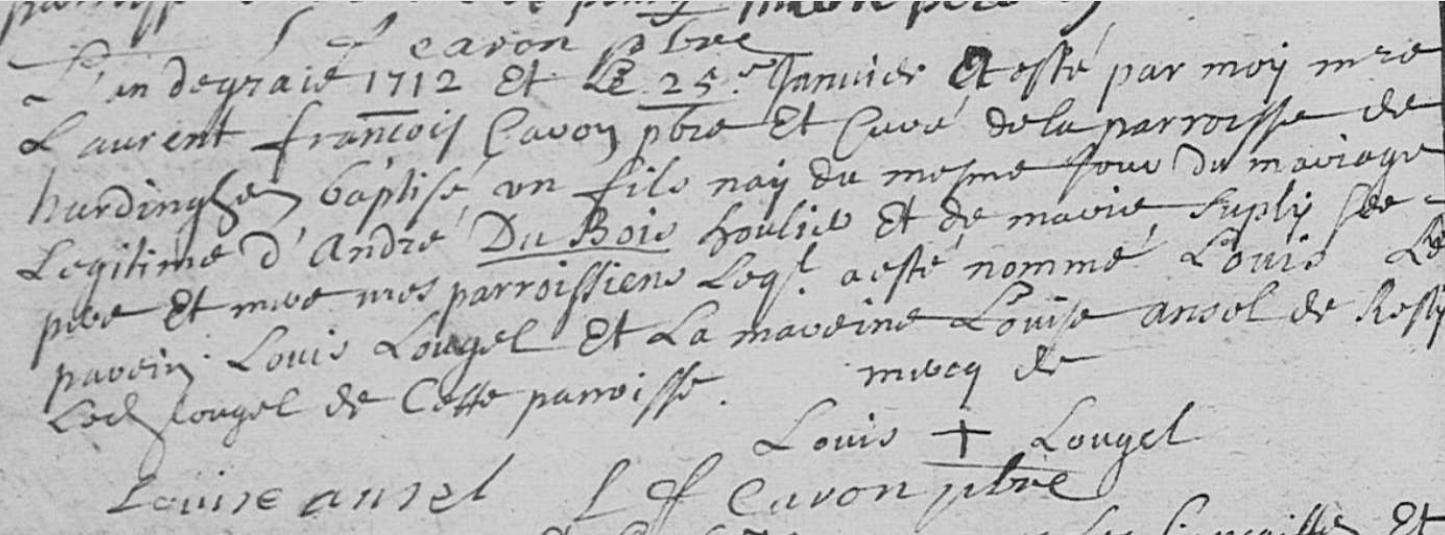 L f cavon pbre
L'an de graie 1712 et Le 25e Janvier At esté par moy mre
Laurent françois Cavon pbre et Curé dela parroisse de
hardinghen baptisé, un fils naÿ du mesme jour du mariage
Legitime d'André Du Bois houlier et de marie suply ses
pere et mere mes parroissiens Leql. a esté nommé Louis Le
parein Louis Lougel et La mareine Louise ansel de Resty
Led Lougel de Cette parroisse. mercq de
Louis + Lougel
Louise ansel L f Cavon pbre